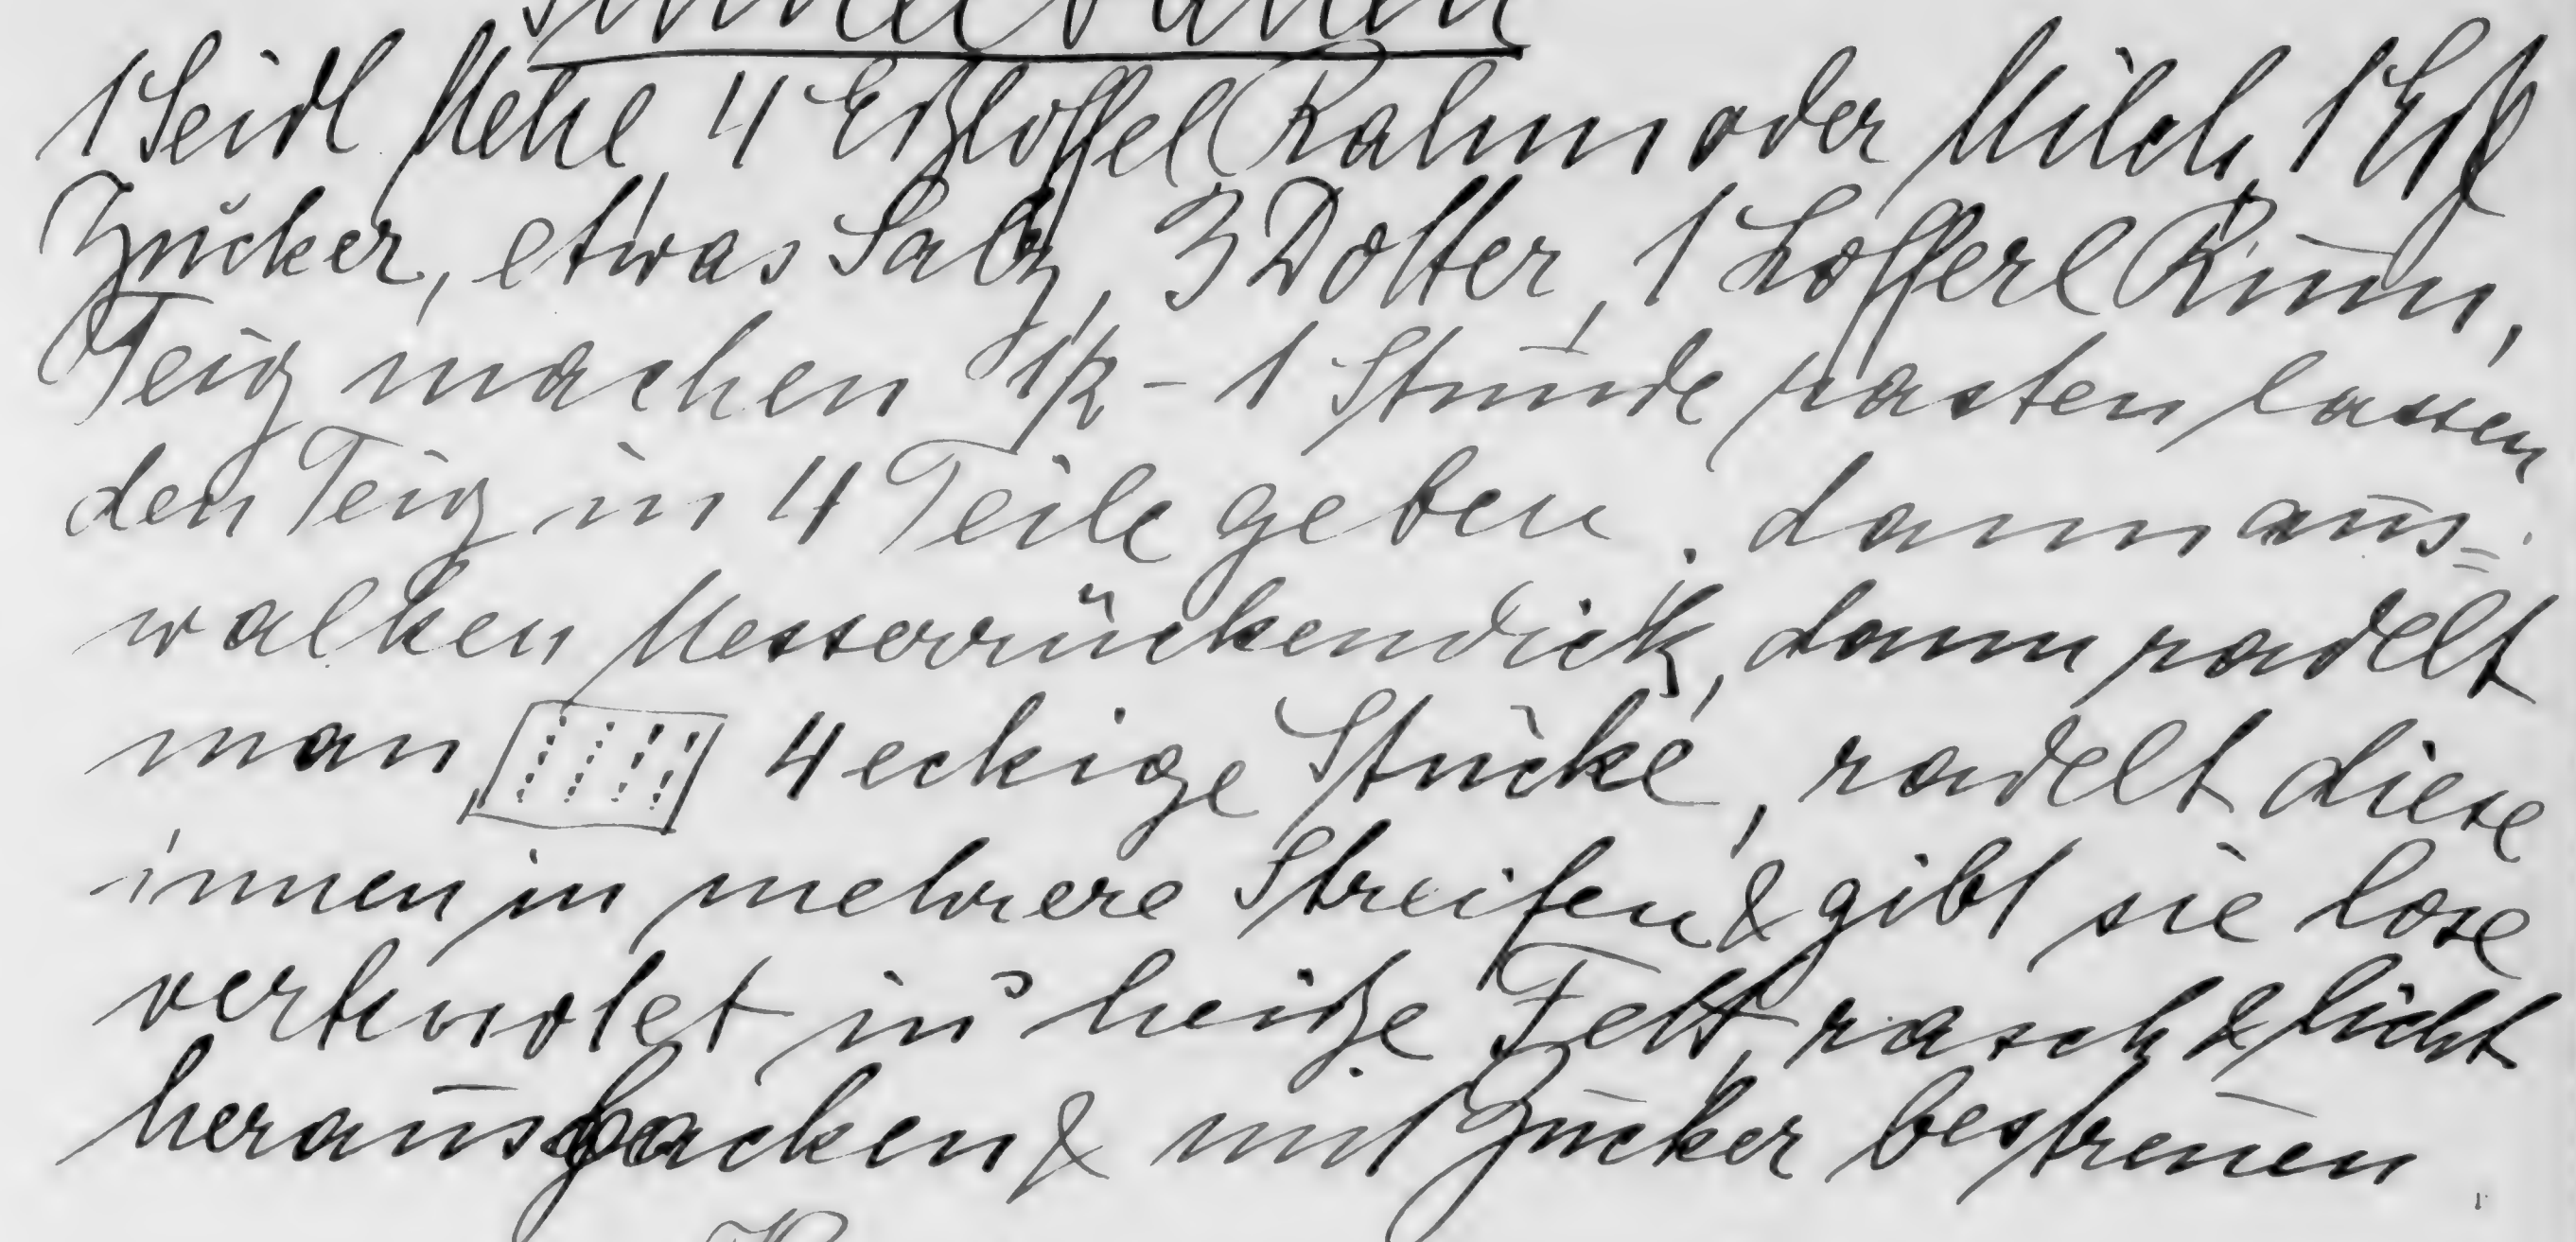 1 Seidl Mehl 4 Eßloffel Rahm oder Milch, 1 Eßl
Zucker, etwas Salz, 3 Dotter, 1 Lofferl Rum,
Teig machen 1/2 - 1 Stunde rasten lassen
den Teig in 4 Teile geben. dann aus=
walken Messerrückendick, dann radelt
man 4 eckige Stücke, radelt diese
innen in mehrere Streifen & gibt sie lose
verknotet in heiße Fett, rasch & licht
herausbacken & mit Zucker bestreuen